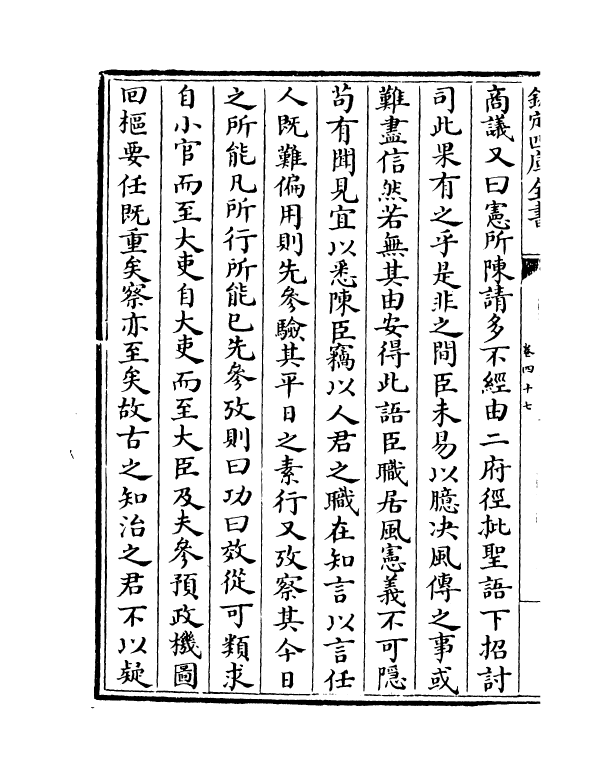 欽定四庫全書
卷四十七
商議又曰憲所陳請多不經由二府徑批聖語下招討
司此果有之乎是非之間臣未易以臆决風傳之事或
難盡信然若無其由安得此語臣職居風憲義不可隠
茍有聞見宜以悉陳臣竊以人君之職在知言以言任
人既難偏用則先參驗其平日之素行又攷察其今日
之所能凡所行所能已先參攷則曰功曰效從可類求
自小官而至大吏自大吏而至大臣及夫參預政機圖
回樞要任既重矣察亦至矣故古之知治之君不以疑